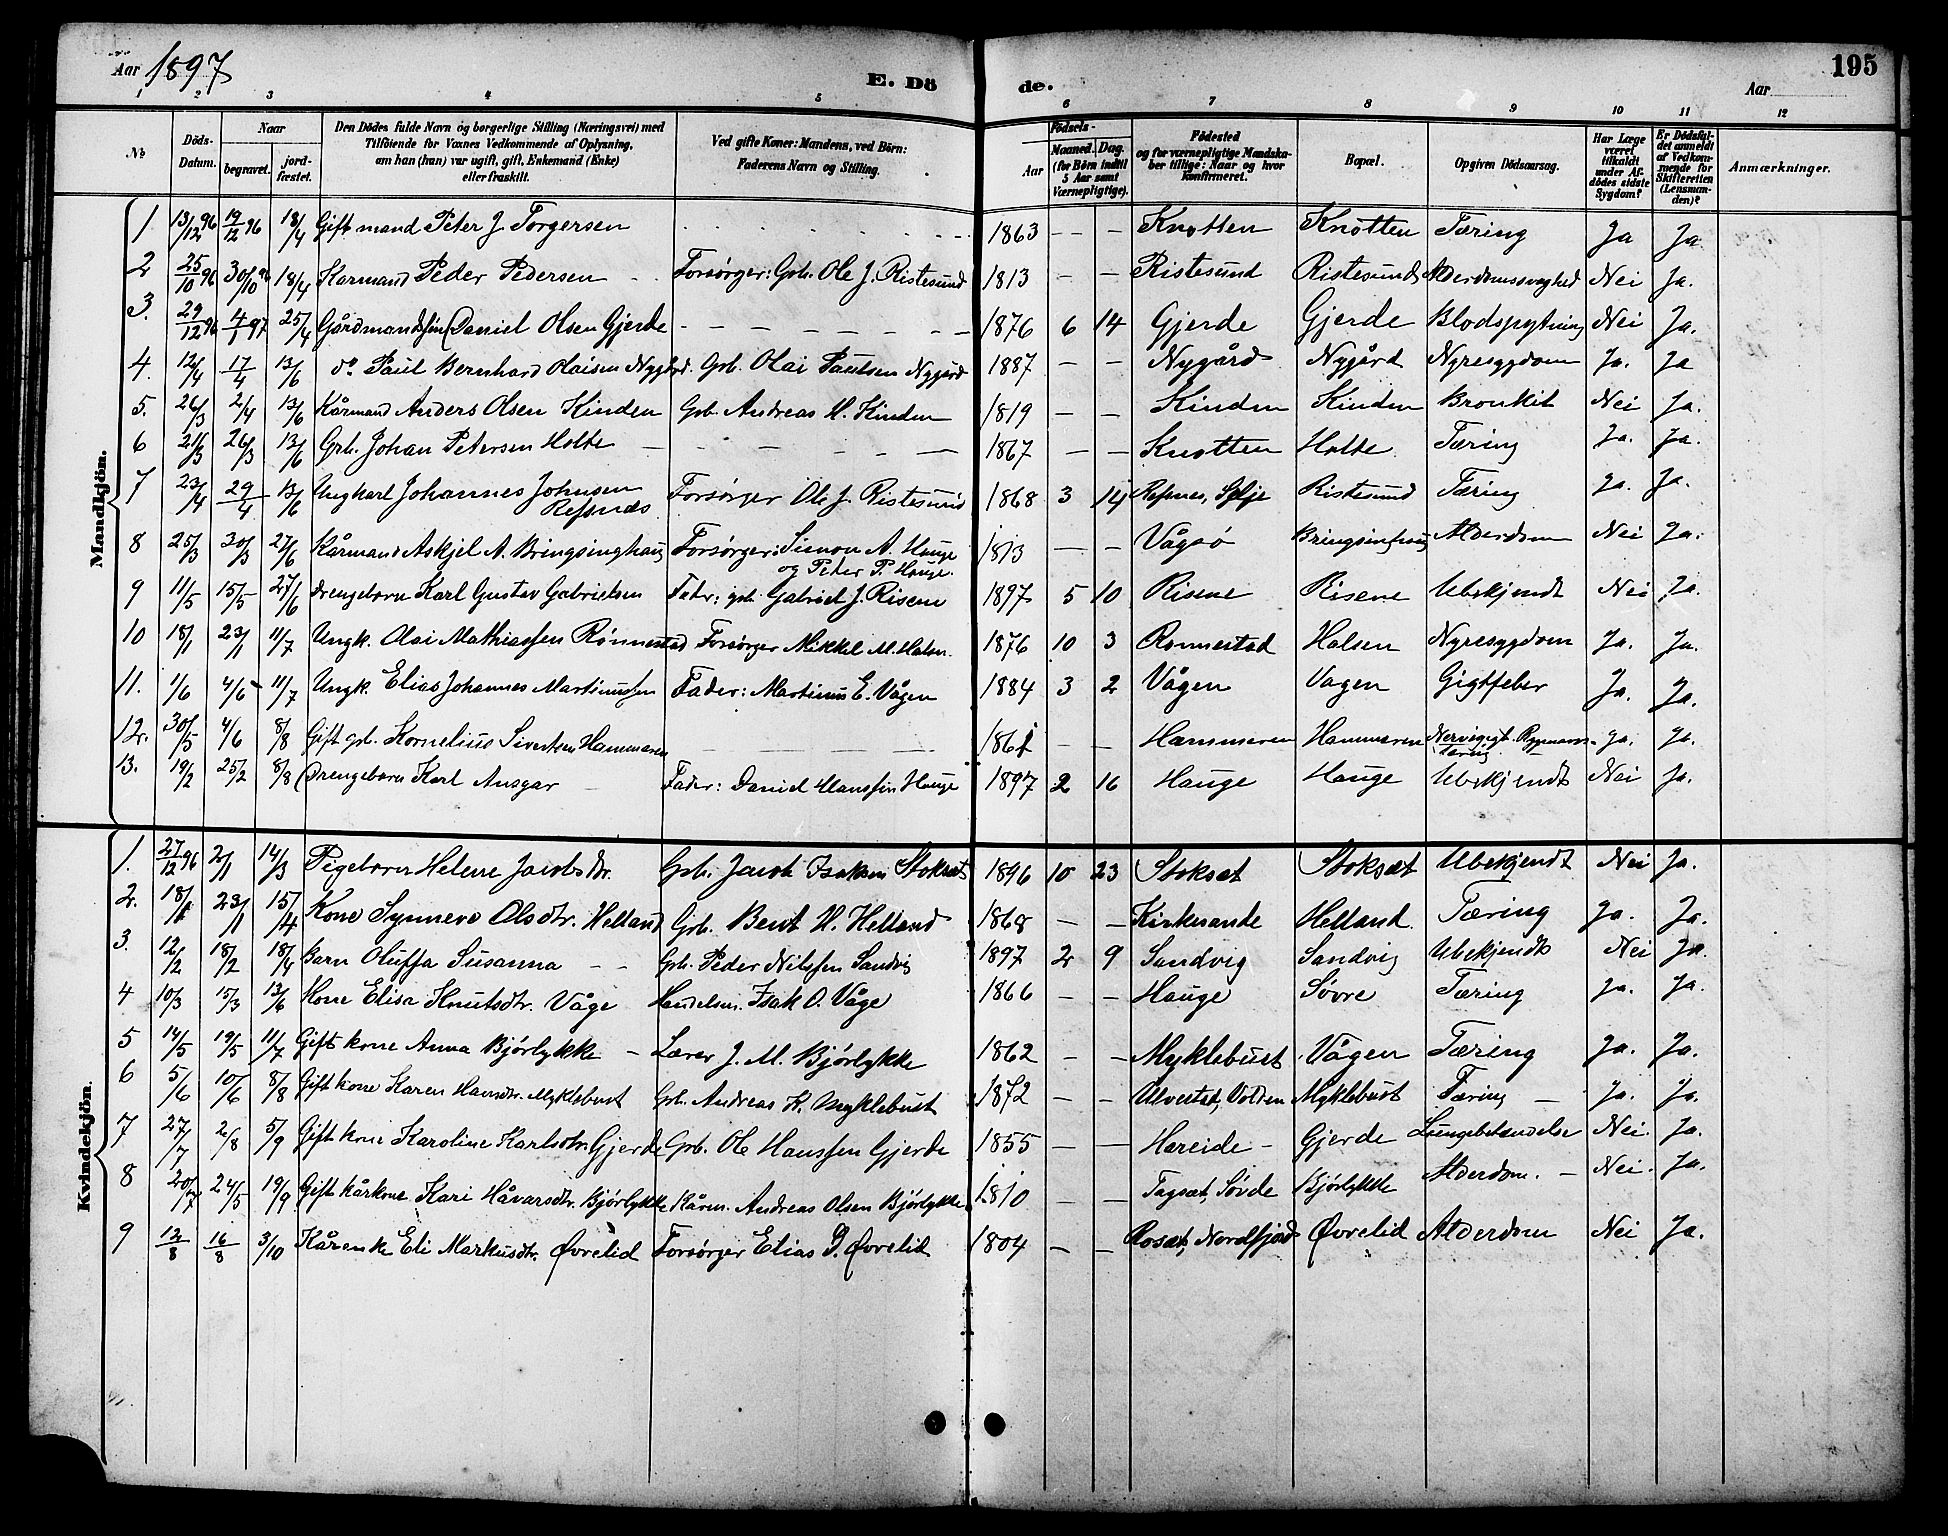 Aar 1897
E. Dö
de.
Aar
195
1 2 3 4 5 6 7 8 9 10 11 12
No
Döds-Datum.
Naar
begravet.
jordfæstet.
Den Dödes fulde Navn og borgerlige Stilling (Næringsvei) med
Tilföiende for Voxnes Vedkommende af Oplysning,
om han (hun) var ugift, gift, Enkemand (Enke)
eller fraskilt.
Ved gifte Koner: Mandens, ved Börn:
Faderens Navn og Stilling.
Födsels-
Aar
Maaned. Dag.
(for Börn indtil
5 Aar samt
Værnepligtige).
Födested
og for værnepligtige Mandskaber tillige: Naar og hvor
konfirmeret.
Bopæl.
Opgiven Dödsaarsag.
Har Læge
været
tilkaldt
under Afdödes sidste
Sygdom?
Er Dödsfaldet anmeldt
af Vedkommende for
Skifteretten
(Lensmanden)?
Anmærkninger.
Mandkjön.
1 13/12 96 19/12 96 18/4 Gift mand Peter J. Torgersen 1863 – – Knotten Knotten Tæring Ja Ja.
2 25/10 96 30/10 96 18/4 Kårmand Peder Pedersen Forsørger: Grb. Ole J. Ristesund 1813 – – Ristesund Ristesund Alderdomssvaghed Nei Ja.
3. 29/12 96 4/1 97 25/4 Gårdmandssøn Daniel Olsen Gjerde 1876 6 14 Gjerde Gjerde Blodspytning Nei Ja.
4. 12/4 17/4 13/6 do Paul Bernhard Olaisen Nygård. Grb. Olai Paulsen Nygård 1887 – – Nygård Nygård Nyresygdom Ja. Ja
5. 26/3 2/4 13/6 Kårmand Anders Olsen Kinden Grb. Andreas M. Kinden 1819 – – Kinden Kinden Bronkit Nei Ja.
6 21/3 26/3 13/6 Grb. Johan Petersen Holte 1867 – – Knotten Holte Tæring Ja. Ja.
7 23/4 29/4 13/6 Ungkarl Johannes Johnsen Refsnes Forsørger Ole J. Ristesund 1868 3 14 Refsnes, Selje Ristesund Tæring Ja. Ja.
8 25/3 30/3 27/6 Kårmand Askjel A. Bringsinghaug Forsørger: Simon A. Hauge
og Peter P. Hauge. 1813 – – Vågsø Bringsinghaug Alderdom Nei Ja.
9 11/5 15/5 27/6 Drengebarn Karl Gustav Gabrielsen Fader: grb. Gabriel J. Risene 1897 5 10 Risene Risene Ubekjendt Nei Ja.
10 18/1 23/1 11/7 Ungk. Olai Mathiassen Rønnestad Forsørger Mikkel M. Halsen. 1876 10 3 Rønnestad Halsen Nyresygdom Ja. Ja.
11. 1/6 4/6 11/7 Ungk. Elias Johannes Martinussen Fader: Martinus E. Vågen 1884 3 2 Vågen Vagen Gigtfeber Ja. Ja.
12. 30/5 4/6 8/8 Gift grb. Kornelius Sivertsen Hammeren 1861 – – Hammeren Hammeren Nervøgigt. tæring Ja. Ja.
13. 19/2 25/2 8/8 Drengebarn Karl Ansgar Fader: Daniel Hanssen Hauge 1897 2 16 Hauge Hauge Ubekjendt Nei Ja.
Kvindekjön.
1. 27/12 96 2/1 14/3 Pigebarn Helene Jacobsdtr. Grb. Jacob Isaksen Stokset 1896 10 23 Stokset Stokset Ubekjendt Nei Ja.
2. 18/1 23/1 15/4 Kone Synneve Olsdtr. Helland Grb. Bent M. Helland 1868 – – Kirknande Helland. Tæring Ja. Ja.
3. 12/2 18/2 18/4 Barn Oluffa Susanna Grb. Peder Nilssen Sandvig 1897 2 9 Sandvig Sandvig Ubekjendt Nei Ja.
4 10/3 15/3 13/6 Kone Elisa Knutsdtr. Våge Handelsm. Isak O. Våge 1866 – – Hauge Søvre Tæring Ja. Ja.
5 14/5 19/5 11/7 Gift kone Anna Bjørlykke Lærer J. M. Bjørlykke 1862 – – Myklebust Vågen Tæring Ja. Ja.
6 5/6 10/6 8/8 Gift kone Karen Hansdtr. Myklebust Grb. Andreas K. Myklebust 1872 – – Ulvestad, Volden Myklebust Tæring Ja. Ja.
7 27/7 2/8 5/9 Gift kone Karoline Karlsdtr. Gjerde Grb. Ole Hanssen Gjerde 1855 – – Hareide Gjerde Lungebetændelse Nei. Ja.
8 20/7 24/5 19/9 Gift kårkone Kari Håvarsdtr. Bjørlykke Kårm. Andreas Olsen Bjørlykke 1810 – – Tagsæt, Søvde Bjørlykke Alderdom. Nei. Ja.
9 12/8 16/8 3/10 Kårenke Eli Markusdtr. Øvrelid Forsørger Elias P. Øvrelid 1804 – – Rosæt, Nordfjord Øvrelid Alderdom Nei Ja.